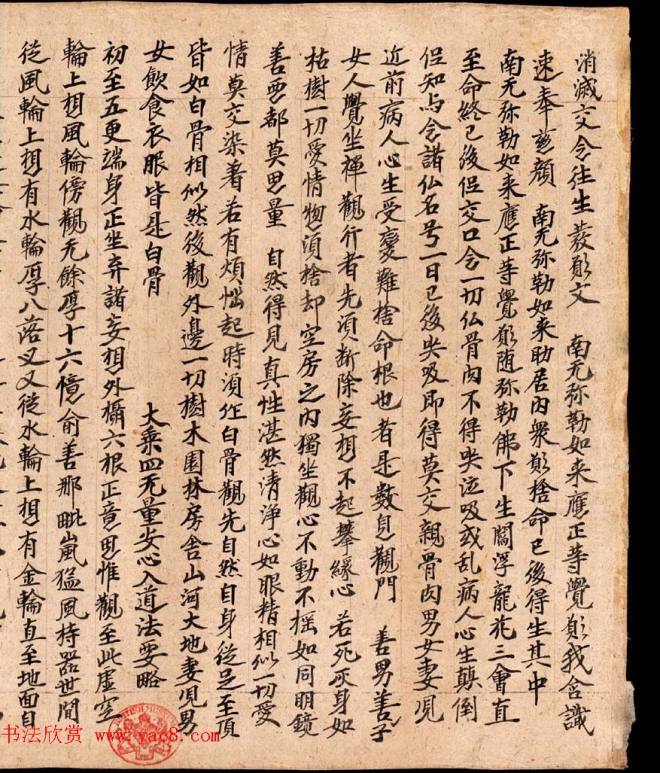 消滅交令往生發願文　南无弥勒如来應正等覺願我含識
速奉慈顏　南无弥勒如来所居內衆願捨命已後得生其中
南无弥勒如来應正等覺願随弥勒佛下生閻浮龍花三會直
至命終已後但交口念一切仏骨肉不得哭泣或乱病人心生顛倒
但知与念諸仏名号一日已後哭即得莫交親骨肉男女妻児
近前病人心生受憂難捨命根也者是數息觀門　善男善子
女人覺坐禪觀行者先須断除妄想不起攀縁心若死灰身如
枯樹一切愛情物須捨却空房之內獨坐觀心不動不摇如同明鏡
善惡都莫思量　自然得見真性湛然清淨心如眼精相似一切愛
情莫交染著若有煩惱起時須作白骨觀先自然自身從足至頂
皆如白骨相似然後觀外邊一切樹木園林房舍山河大地妻児男
女飲食衣服皆是白骨　大乘四无量安心入道法要略
初至五更端身正坐弃諸妄想外攝六根正意思惟觀至此虚空
輪上想風輪傍觀无餘厚十六憶俞善那毗嵐猛風持器世間
從風輪上想有水輪厚八落叉又從水輪上想有金輪直至地面自
书法欣赏 www.yac8.com